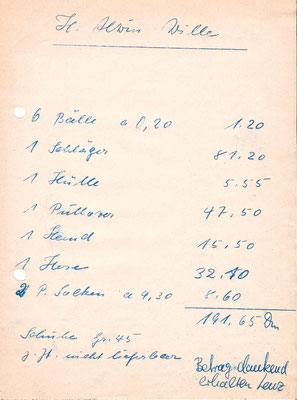 H. Alwin Wille
6 Bälle a 0,20 1.20
1 Schläger 81.20
1 Hülle 5.55
1 Pullover 47,50
1 Hemd 15,50
1 Hose 32.10
2 P. Socken a 4,30 8.60
191.65 Dm
Schuhe Gr. 45
z. Zt. nicht lieferbar
Betrag dankend
erhalten Lenz